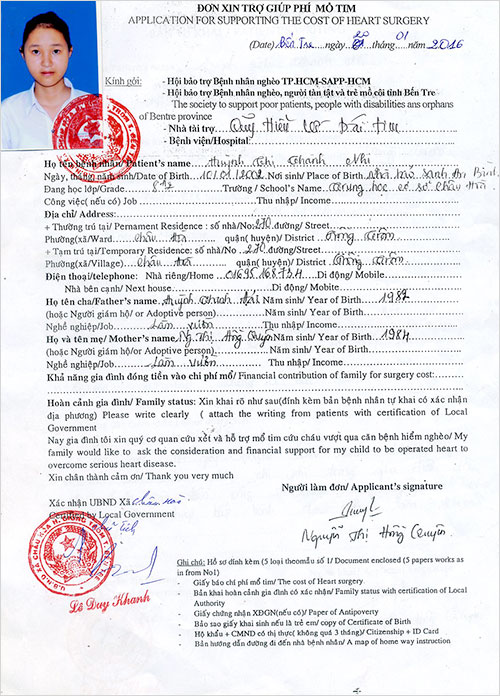 ĐƠN XIN TRỢ GIÚP PHÍ MỔ TIM
APPLICATION FOR SUPPORTING THE COST OF HEART SURGERY
(Date) Bến Tre 20 tháng 01 /2016
Kính gởi: - Hội bảo trợ Bệnh nhân nghèo TP.HCM-SAPP-HCM
- Hội bảo trợ Bệnh nhân nghèo, người tàn tật và trẻ mồ côi tỉnh Bến Tre
The society to support poor patients, people with disabilities ans orphans
of Bentre province
- Nhà tài trợ Quỹ Hiểu Về Trái Tim
- Bệnh viện/Hospital:
Họ tên bệnh nhân/ Patient's name Huỳnh Thị Thanh Nhi
Ngày, tháng, năm sinh/Date of Birth 10/01/2002 Nơi sinh/ Place of Birth Nhà bảo sanh An Bình
Đang học lớp/Grade 8 Trường / School's Name Trung học cơ sở Châu Hòa
Công việc( nếu có) Job Thu nhập/ Income
Địa chỉ/ Address:
+ Thường trú tại/ Permament Residence : số nhà/No: 270 đường/ Street
Phường(xã)/Ward Châu Hòa quận( huyện)/ District Giồng Trôm
+ Tạm trú tại/Temporary Residence: số nhà/No 270 đường/Street
Phường(xã/Village) Châu Hòa quận( huyện)/ District Giồng Trôm
Điện thoại/telephone: Nhà riêng/Home 01695168734 Di động / Mobile
Nhà bên cạnh/ Next house Di động/ Mobite
Họ tên cha/Father's name Huỳnh Thanh Năm sinh/ Year of Birth 1982
(hoặc Người giám hộ/ or Adoptive person) Năm sinh/ Year of Birth
Nghề nghiệp/Job Làm vườn Thu nhập/ Income
Họ và tên mẹ/ Mother's name Ng Thị Hồng Quyên Năm sinh/ Year of Birth 1984
(hoặc Người giám hộ/or Adoptive person) Năm sinh / Year of Birth
Nghề nghiệp/Job Làm vườn Thu nhập/ Income
Khả năng gia đình đóng tiền vào chi phí mổ/ Financial contribution of family for surgery cost:
Hoàn cảnh gia đình/ Family status: Xin khai rõ như sau(đính kèm bản bệnh nhân tự khai có xác nhận
địa phương) Please write clearly ( attach the writing from patients with certification of Local
Government
Nay gia đình tôi xin quý cơ quan cứu xét và hỗ trợ mổ tim cứu cháu vượt qua căn bệnh hiểm nghèo/ My
family would like to ask the consideration and financial support for my child to be operated heart to
overcome serious heart disease.
Xin chân thành cảm ơn/ Thank you very much
Người làm đơn/ Applicant's signature
Xác nhận UBND Xã Châu Hòa
Certified by Local Government
Chủ Tịch
Nguyễn Thị Hồng Quyên
Lê Duy Khanh
Ghi chú: Hồ sơ đính kèm (5 loại theomẫu số 1/ Document enclosed (5 papers works as
in from No1)
- Giấy báo chi phí mổ tim/ The cost of Heart surgery
- Bản khai hoàn cảnh gia đình có xác nhận/ Family status with certification of Local
Authority
- Giấy chứng nhận XĐGN(nếu có)/ Paper of Antipoverty
- Bảo sao giấy khai sinh nếu là trẻ em/ copy of Certificate of Birth
- Hộ khẩu + CMND có thị thực( không quá 3 tháng)/ Citizenship + ID Card
- Bản hướng dẫn đường đi đến nhà bệnh nhân/ A map of home way instruction